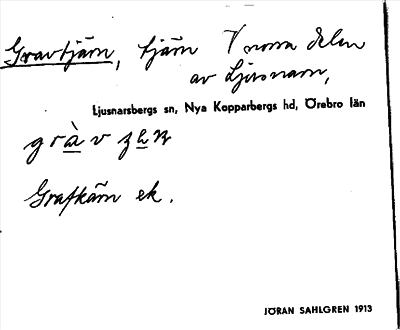 Gravtjärn, tjärn i norra delen
av Ljusnarn,
Ljusnarsbergs sn, Nya Kopparbergs hd, Örebro län
Grafkärn ek.
JÖRAN SAHLGREN 1913